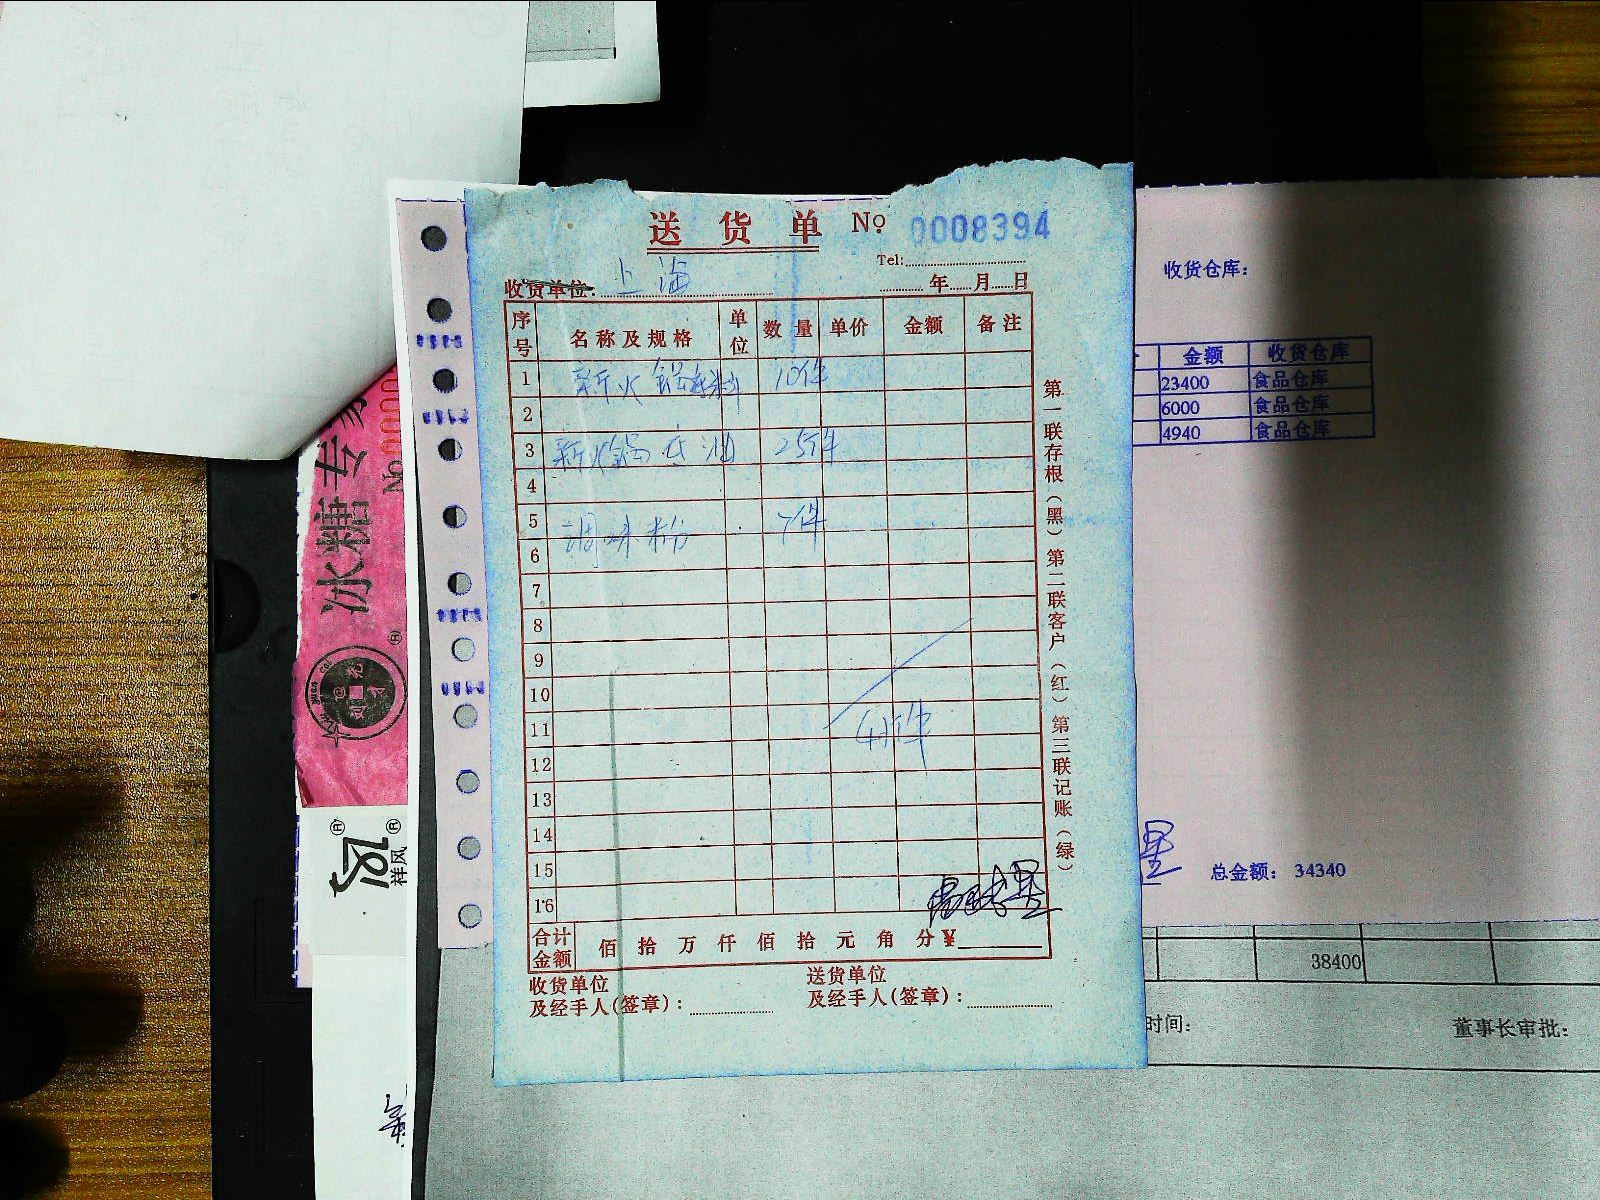 送货单 № 0008394
Tel:
收货单位: 上海
年 月 日
序号 名称及规格 单位 数量 单价 金额 备注
1 新火锅底料 10件
2
3 新火锅底油 25件
4
5 调味粉 7件
6
7
8
9
10
11 42件
12
13
14
15
16
合计金额 佰 拾 万 仟 佰 拾 元 角 分 ¥
收货单位及经手人(签章):
送货单位及经手人(签章):
第一联存根(黑) 第二联客户(红) 第三联记账(绿)
收货仓库:
金额 收货仓库
23400 食品仓库
6000 食品仓库
4940 食品仓库
总金额: 34340
38400
时间:
董事长审批:
冰糖专家
No
祥风